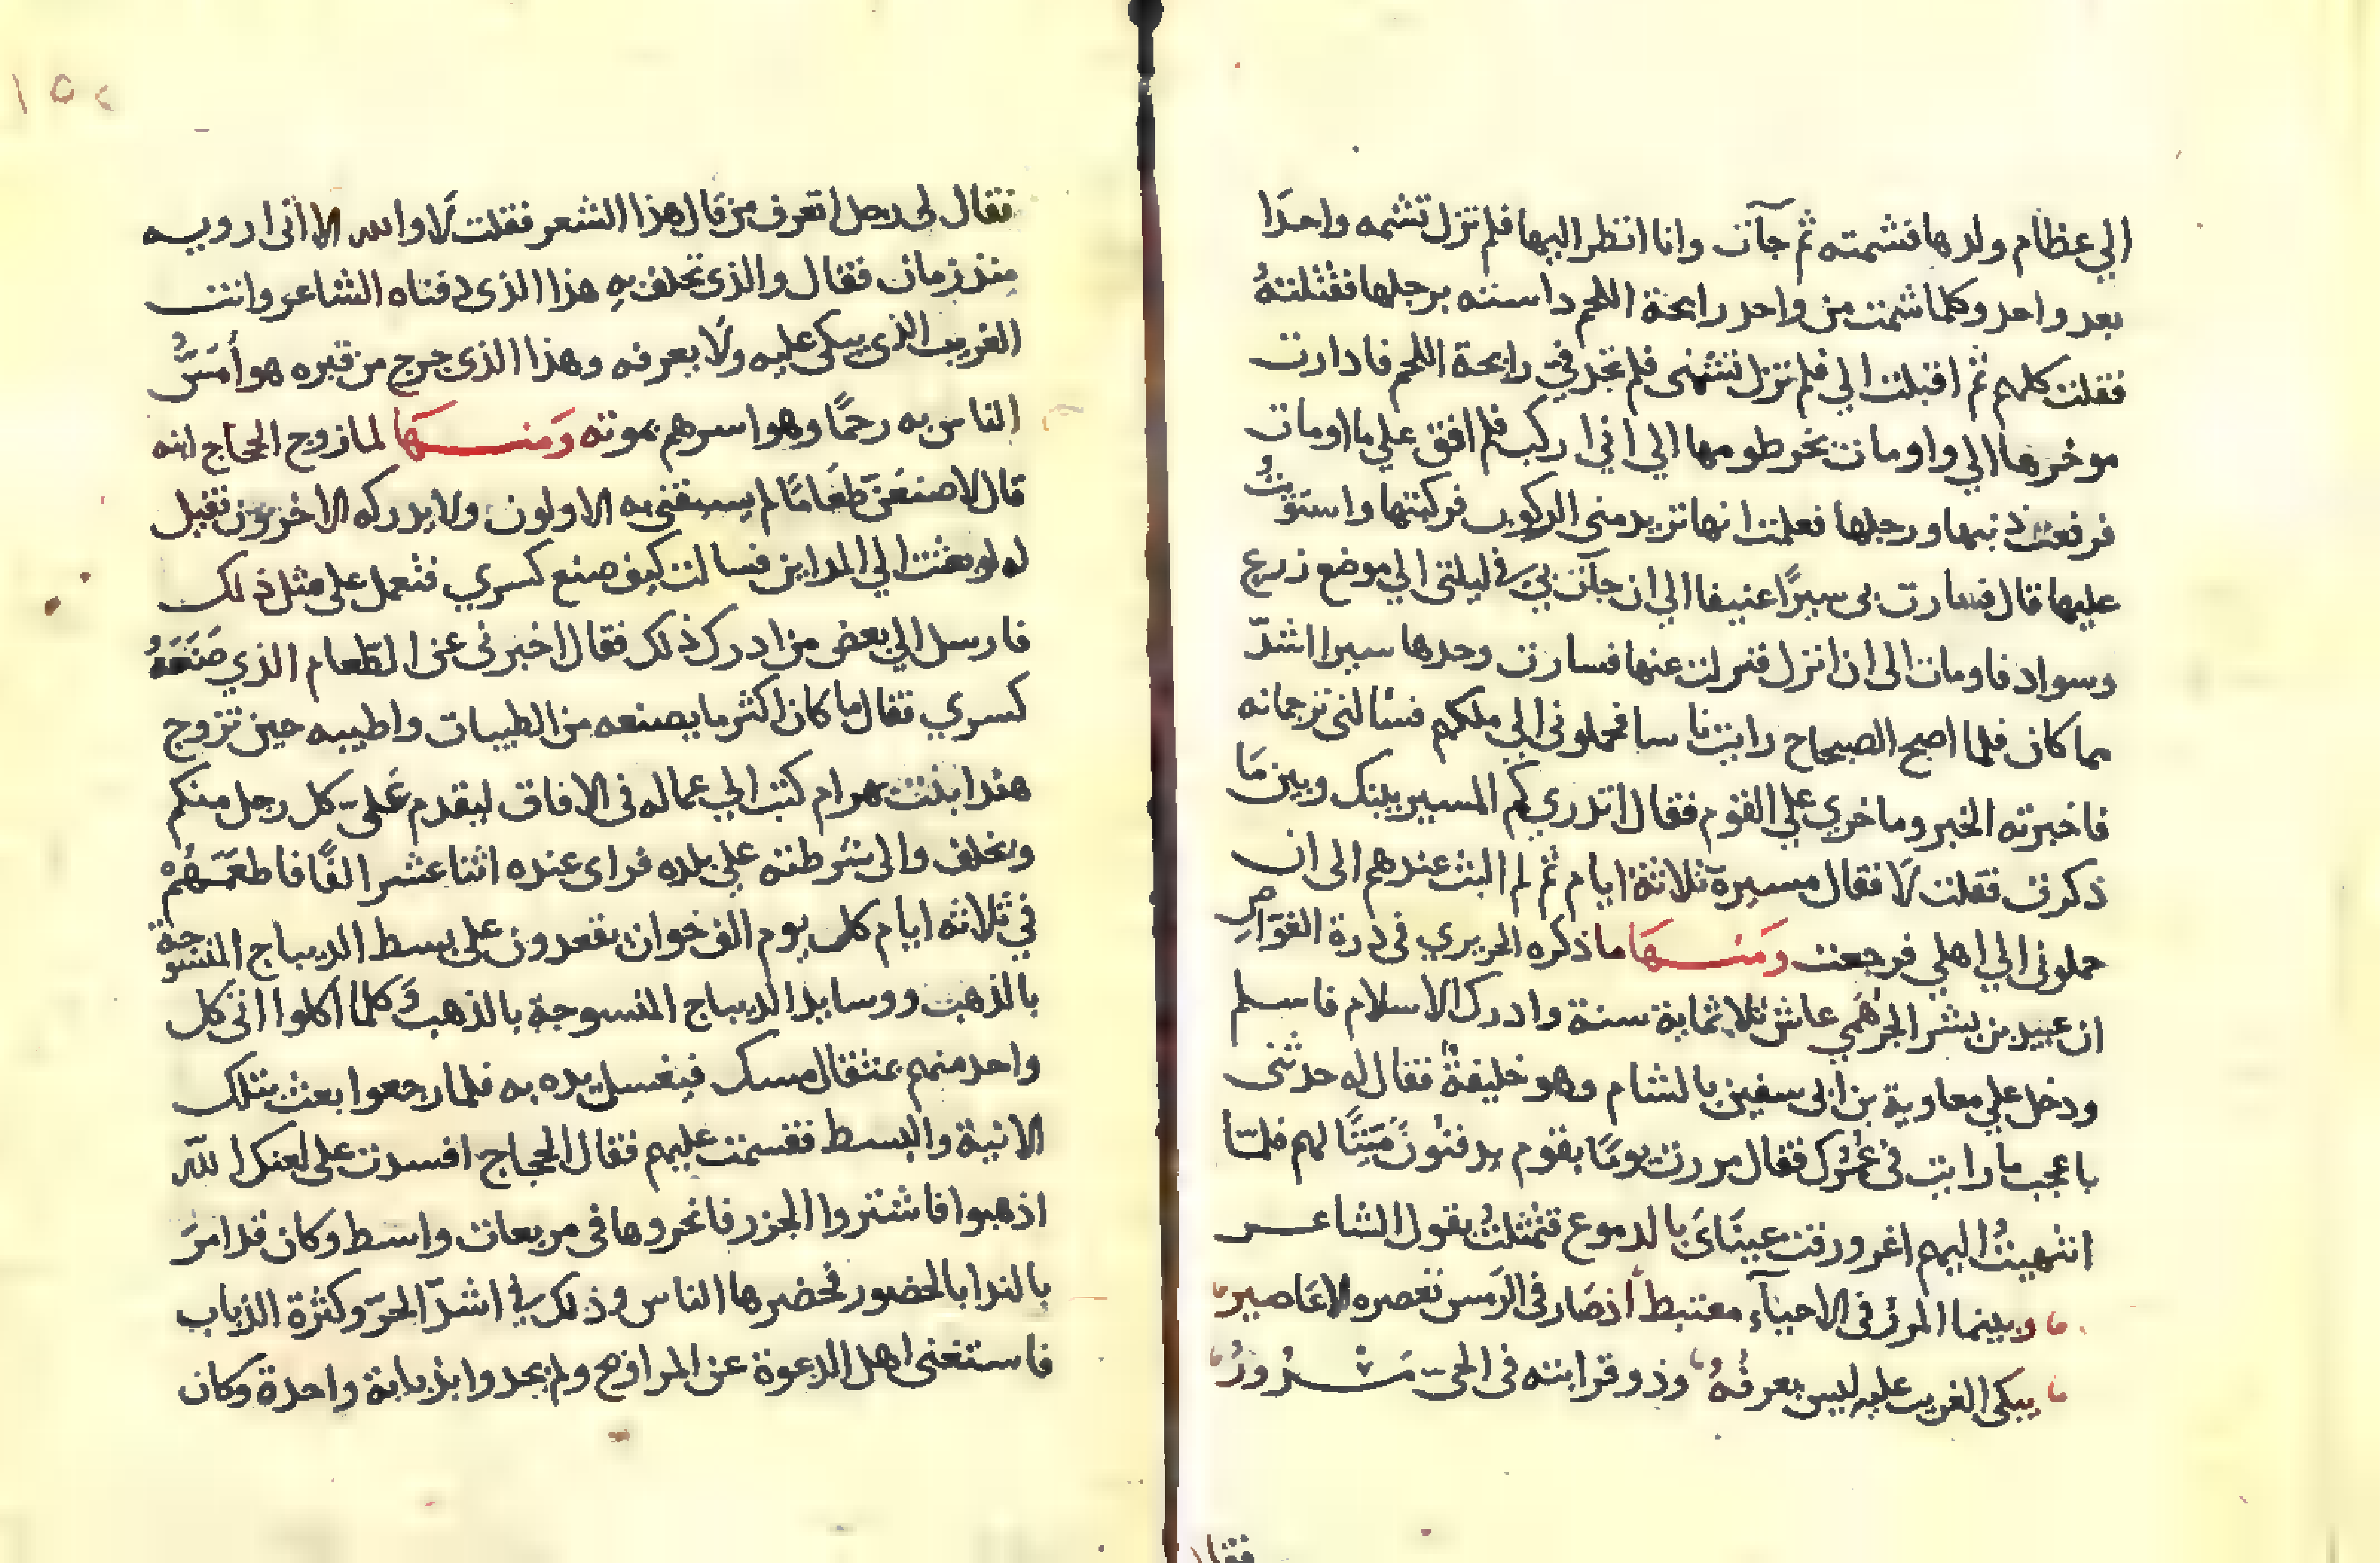 الي عظام ولدها فشمته ثم جآت وانا انظر اليها فلم تزل تشمه واحدًا
بعد واحد وكلما شمت من واحد رايحة اللحم داسته برجلها فقتلتهُ
فقتلت كلهم ثم اقبلت الي فلم تزل تشمني فلم تجد في رايحة اللحم فادارت
موخرها الي واومات بخرطومها الي اني اركب فلم افق علي ما اومات
فرفعت ذنبها ورجلها فعلمت انها تريد مني الركوب فركبتها واستويتُ
عليها قال فسارت بي سيرًا عنيفا الي ان جآت بي في ليلتي الي موضع زرع
وسواد فاومات الى ان انزل فنزلت عنها فسارت وحدها سيرا اشدّ
مما كان فلما اصبح الصباح رايت ناسا فحملوني الي ملكهم فسالني ترجمانه
فاخبرته الخبر وما جري علي القوم فقال اتدري كم المسير بينك وبين مَا
ذكرت فقلت لَا فقال مسيرة ثلاثة ايام ثم لم البث عندهم الى ان
حملوني الي اهلي فرجعت وَمنـهَا ما ذكره الحريري في درة الغوّاصِ
ان عبيد بن بشر الجرهمي عاش ثلاثماية سنة وادرك الاسلام فاسلم
ودخل علي معاوية بن ابى سفين بالشام وهو خليفةٌ فقال له حدثني
باعجب ما رايت في عمُرك فقال مررت يومًا بقوم يدفنُونَ مَيّتًا لهم فلمّا
انتهيتُ اليهم اغرورقت عينَايَ بالدموع فتمثلتُ بقول الشاعر
وبينما المرؤ في الاحيآءِ مغتبط اذ صَار في الرّمس تعصره الاعَاصير
يبكي الغريب عليه ليس يعرفُهُ وذو قرابته في الحيّ مَسْرُورُ
فقال
١٥٤
فقال لى رجل اتعرف من قال هذا الشعر فقلت لَا والله الا انى ارويه
مِنذ زمان فقال والذى تحلف بهِ هذا الذى دفناه الشاعر وانت
الغريب الذى يبكى عليه ولَا يعرفه وهذا الذى خرج من قبره هو أمَسُّ
الناس به رحمًا وهو اسرهم بموته وَمنـهَا لما زوج الحجاج ابنه
قال لاصنعنّ طعَامًا لم يسبقني به الاولون ولا يدركه الاخرون فقيل
له لو بعثت الي المداين فسالت كيف صنع كسري فتعمل على مثل ذلك
فارسل الي بعض من ادرك ذلك فقال اخبرنى عن الطّعام الذي صَنَعَهُ
كسري فقال ما كان اكثر ما يصنعه من الطيبات واطيبه حين تزوج
هندا بنت بهرام كتب الي عماله فى الافاق ليقدم عَلىّ كل رجل منكم
ويخلف والى شرطته علي بلده فراى عنده اثنا عشر الفًا فاطعَمَهُمْ
في ثلاثه ايام كل يوم الف خوان يقعدون علي بسط الديباج المنسوجة
بالذهب ووسايد الديباج المنسوجة بالذهب وَكلما اكلوا اتى كل
واحد منهم بمثقال مسك فيغسل يده به فلما رجعوا بعث بتلك
الانية والبسط فقسمت عليهم فقال الحجاج افسدت على لعنك اللّه
اذهبوا فاشتروا الجزر فانحروها فى مربعات واسط وكان قد امرَ
بالندا بالحضور فحضرها الناس وذلك في اشدّ الحرّ وكثرة الذباب
فاستغنى اهل الدعوة عن المراوح ولم يجدوا بذبابة واحدة وكان